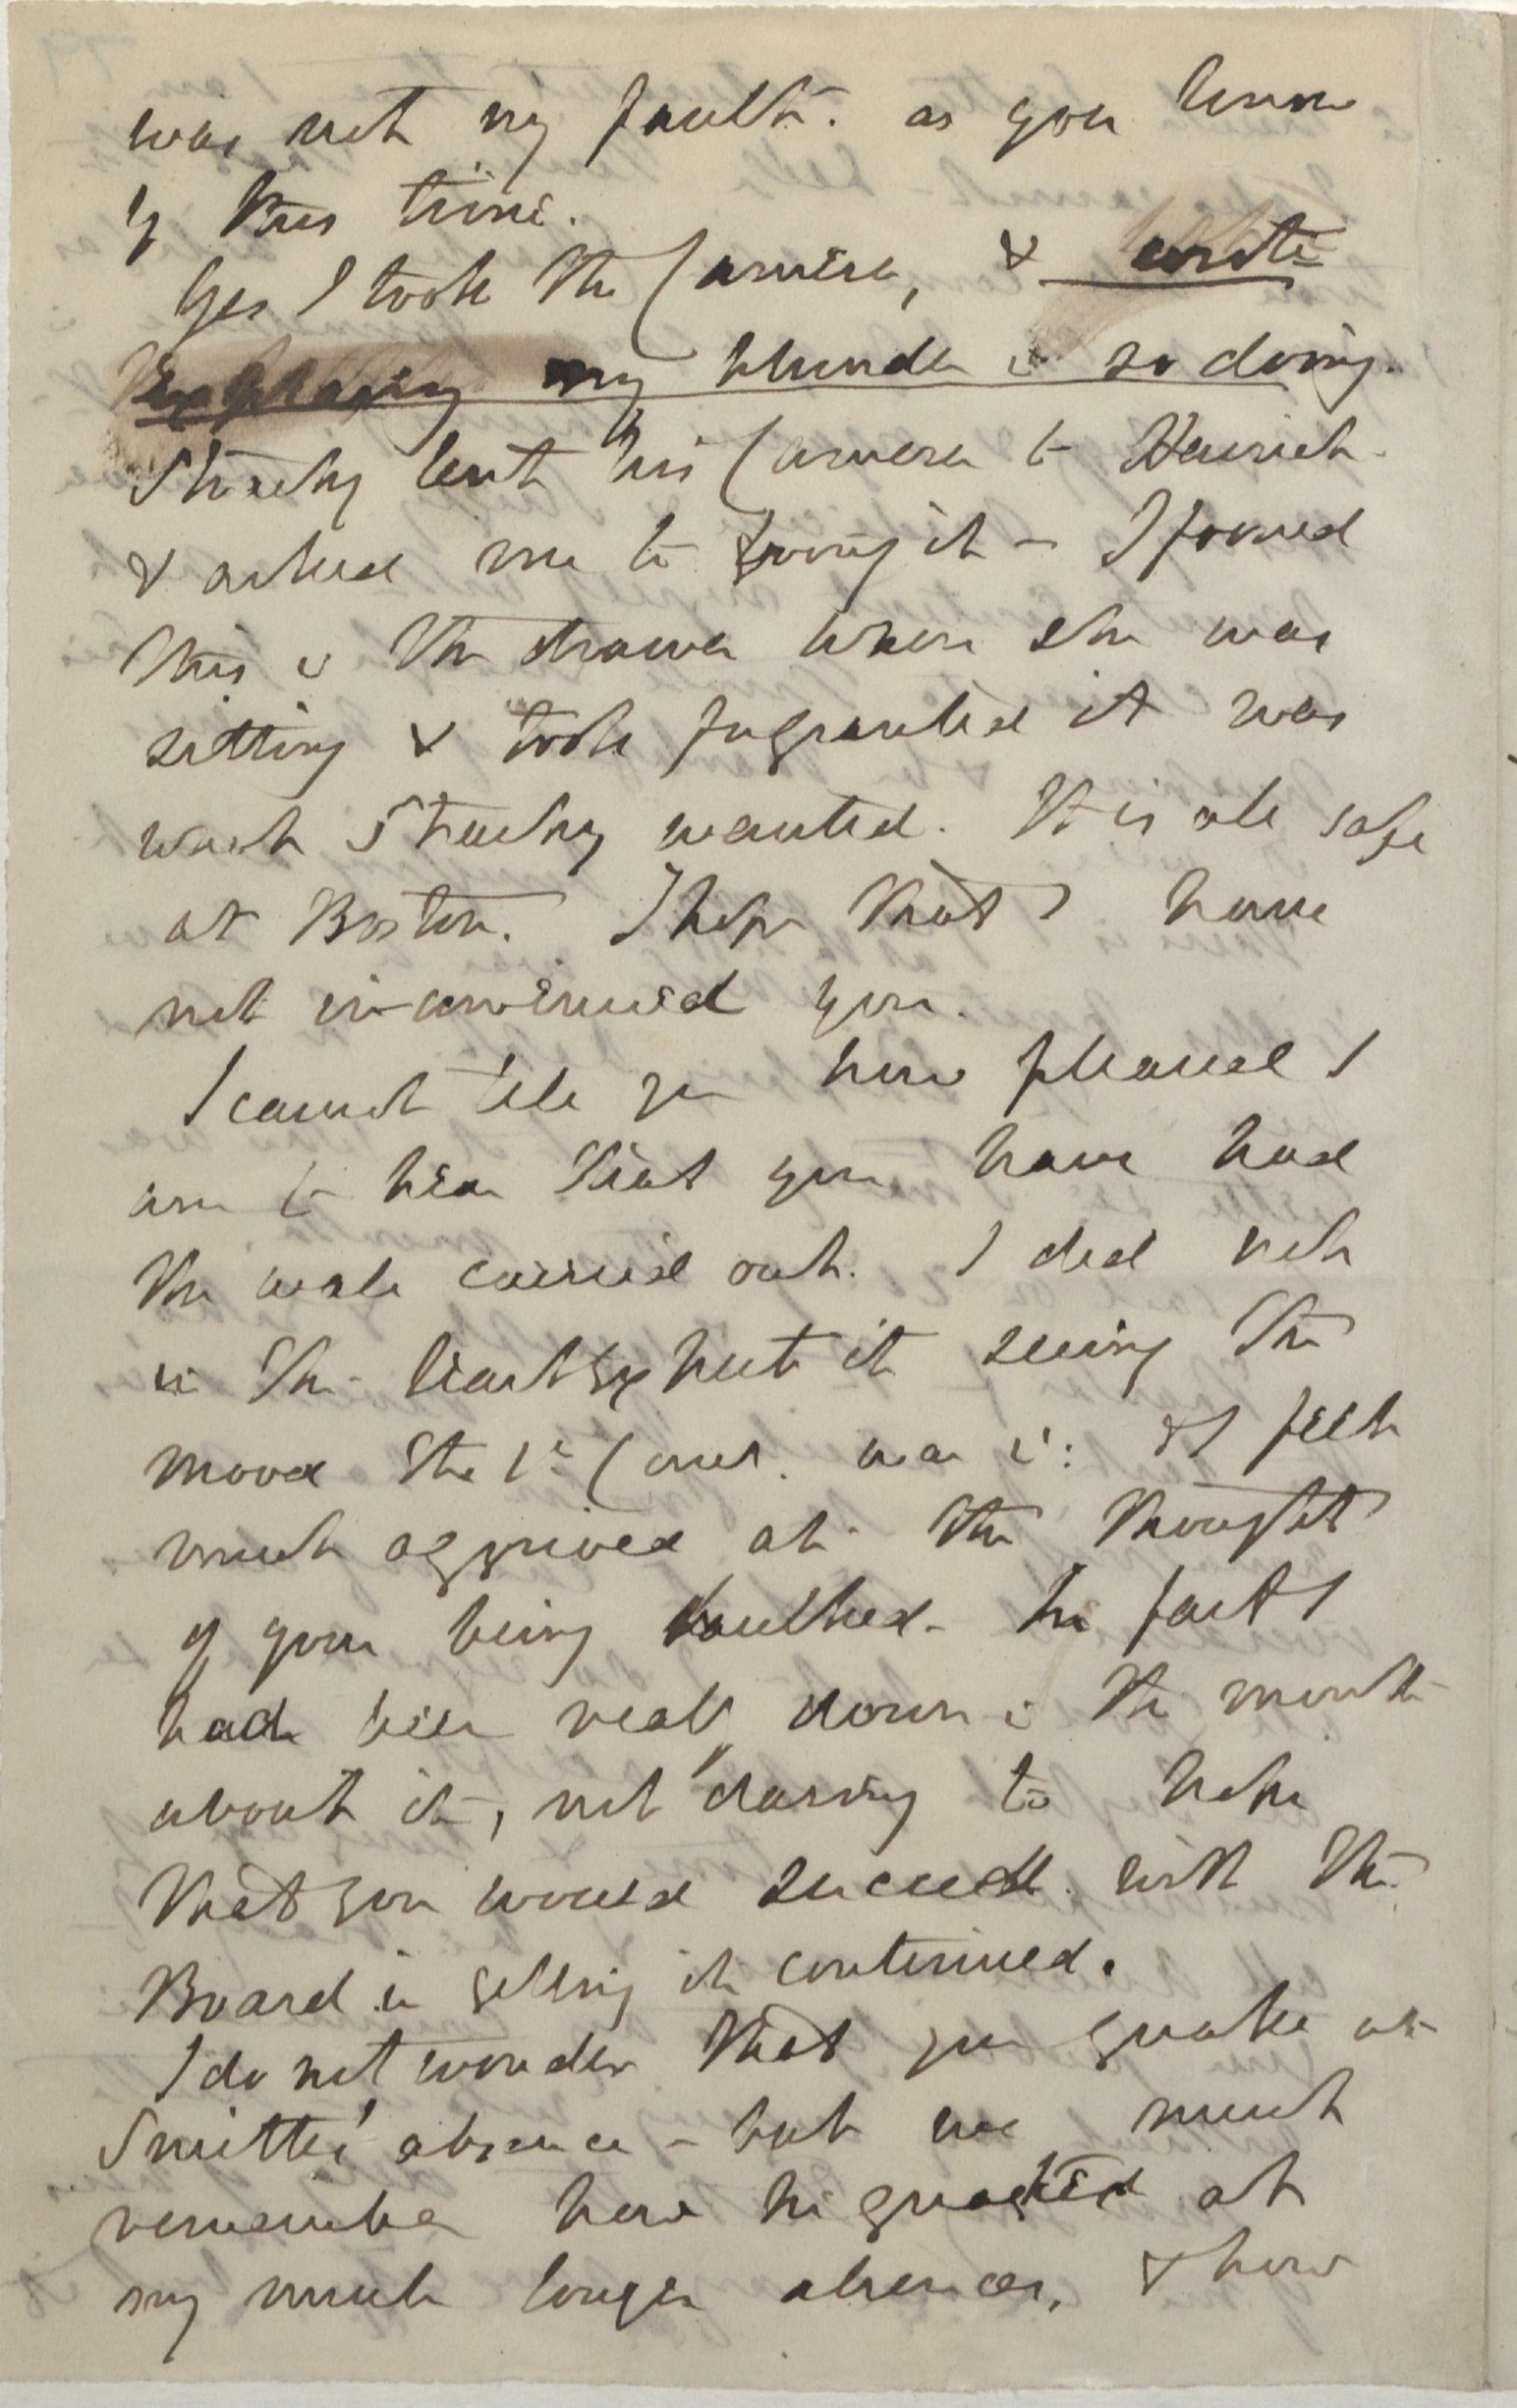 was not my fault. as you know
by this time.
Yes I took the Camera, & wrote
explaining my blunder in so doing.
Strachey lent his Camera to Henrich
& asked me to bring it – I found
this in the drawer where she was
sitting & took for granted it was
what Strachey wanted. It is all safe
at Boston. I hope that I have
not inconvenied you.
I cannot tell you how pleased I
am to hear that you have had
the wall carried out. I did not
in the least expect it seeing the
mood the 1st Comr. was in: & I felt
much aggrieved at the thought
of your being baulked – In fact I
had been really down in the mouth
about it, not daring to hope
that you would succeed with the
Board in getting it continued.
I do not wonder that you quake at
Smith's absence – but we must
remember how he quaked at
my much longer absences, & how